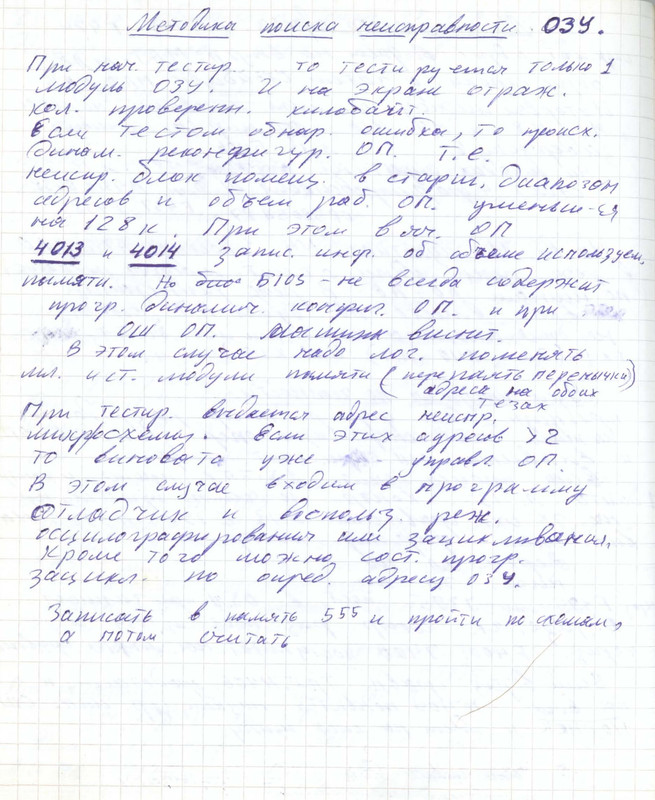 Методика поиска неисправности ОЗУ.
При нач. тестир. то тестируется только 1
модуль ОЗУ. И на экран отраж.
кол. проверенн. килобайт.
Если тестом обнар. ошибка, то происх.
динам. реконфигур. ОП. т.е.
неиспр. блок помещ. в старш. диапозон
адресов и объем раб. ОП. уменьш-ся
на 128 к. При этом в яч. ОП
4013 и 4014 запис. инф. об объеме используем.
памяти. Но БIOS - не всегда содержат
прогр. динамич. конфиг. ОП. и при
ОШ ОП. машина виснит.
В этом случае надо лог. поменять
мл. и ст. модули памяти (перепаять перемычки)
адреса на обоих
тезах
При тестир. выдается адрес неиспр.
микросхемы. Если этих адресов >2
то виновато уже управл. ОП.
В этом случае входим в программу
отладчик и использ. реж.
осцилографирования или зацикливания.
Кроме того можно сост. прогр.
зацикл. по опред. адресу ОЗУ.
Записать в память 555 и пройти по схемам,
а потом считать